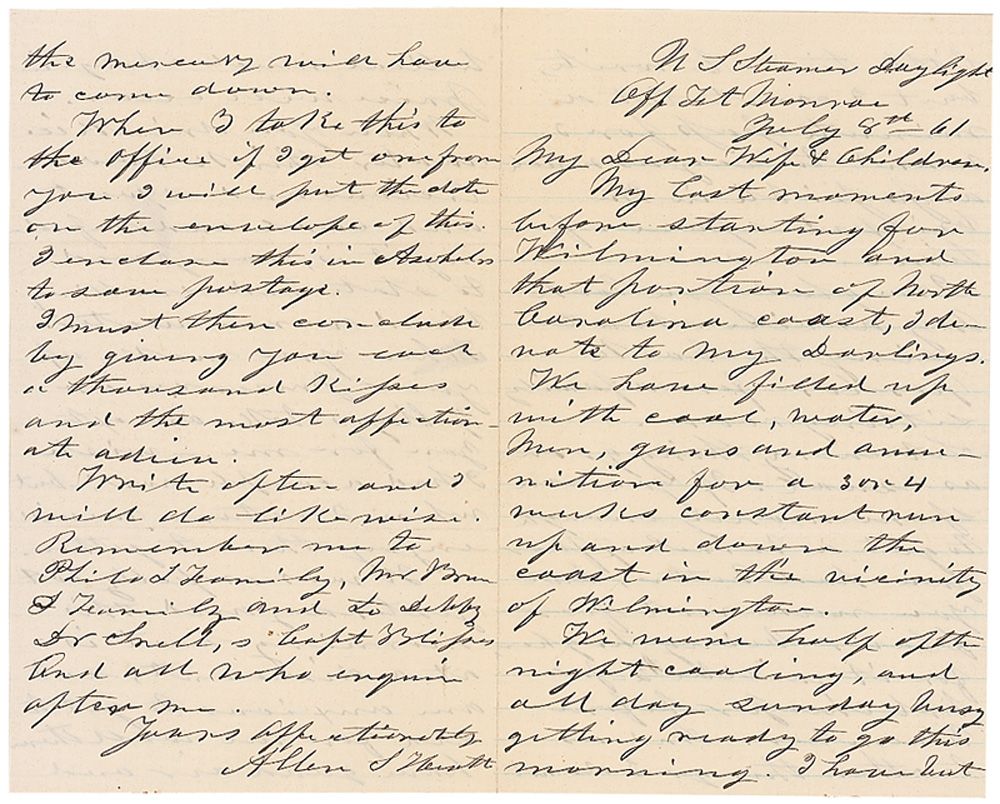 U S Steamer Daylight
Off Fot Monroe
July 8th 61
My Dear Wife & Children.
My last moments
before starting for
Wilmington and
that portion of North
Carolina coast, I de-
vote to My Darlings.
We have filled up
with coal, water,
Men, guns and amu-
nition for a 3 or 4
weeks constant run
up and down the
coast in the vicinity
of Wilmington.
We were half of the
night coaling, and
all day sunday busy
getting ready to go this
morning. I have but
the mercury will have
to come down.
When I take this to
the office if I get one from
you I will put the date
on the envelope of this.
I enclose this in
to save postage.
I must then conclude
by giving you each
a thousand Kisses
and the most affection-
ate adieu.
Write often and I
will do likewise.
Remember me to
Philo & Family, Mr
& Family and to Debby
Dr Snell,s Capt Blisses
And all who enquire
after me.
Yours Affectionately
Allen S